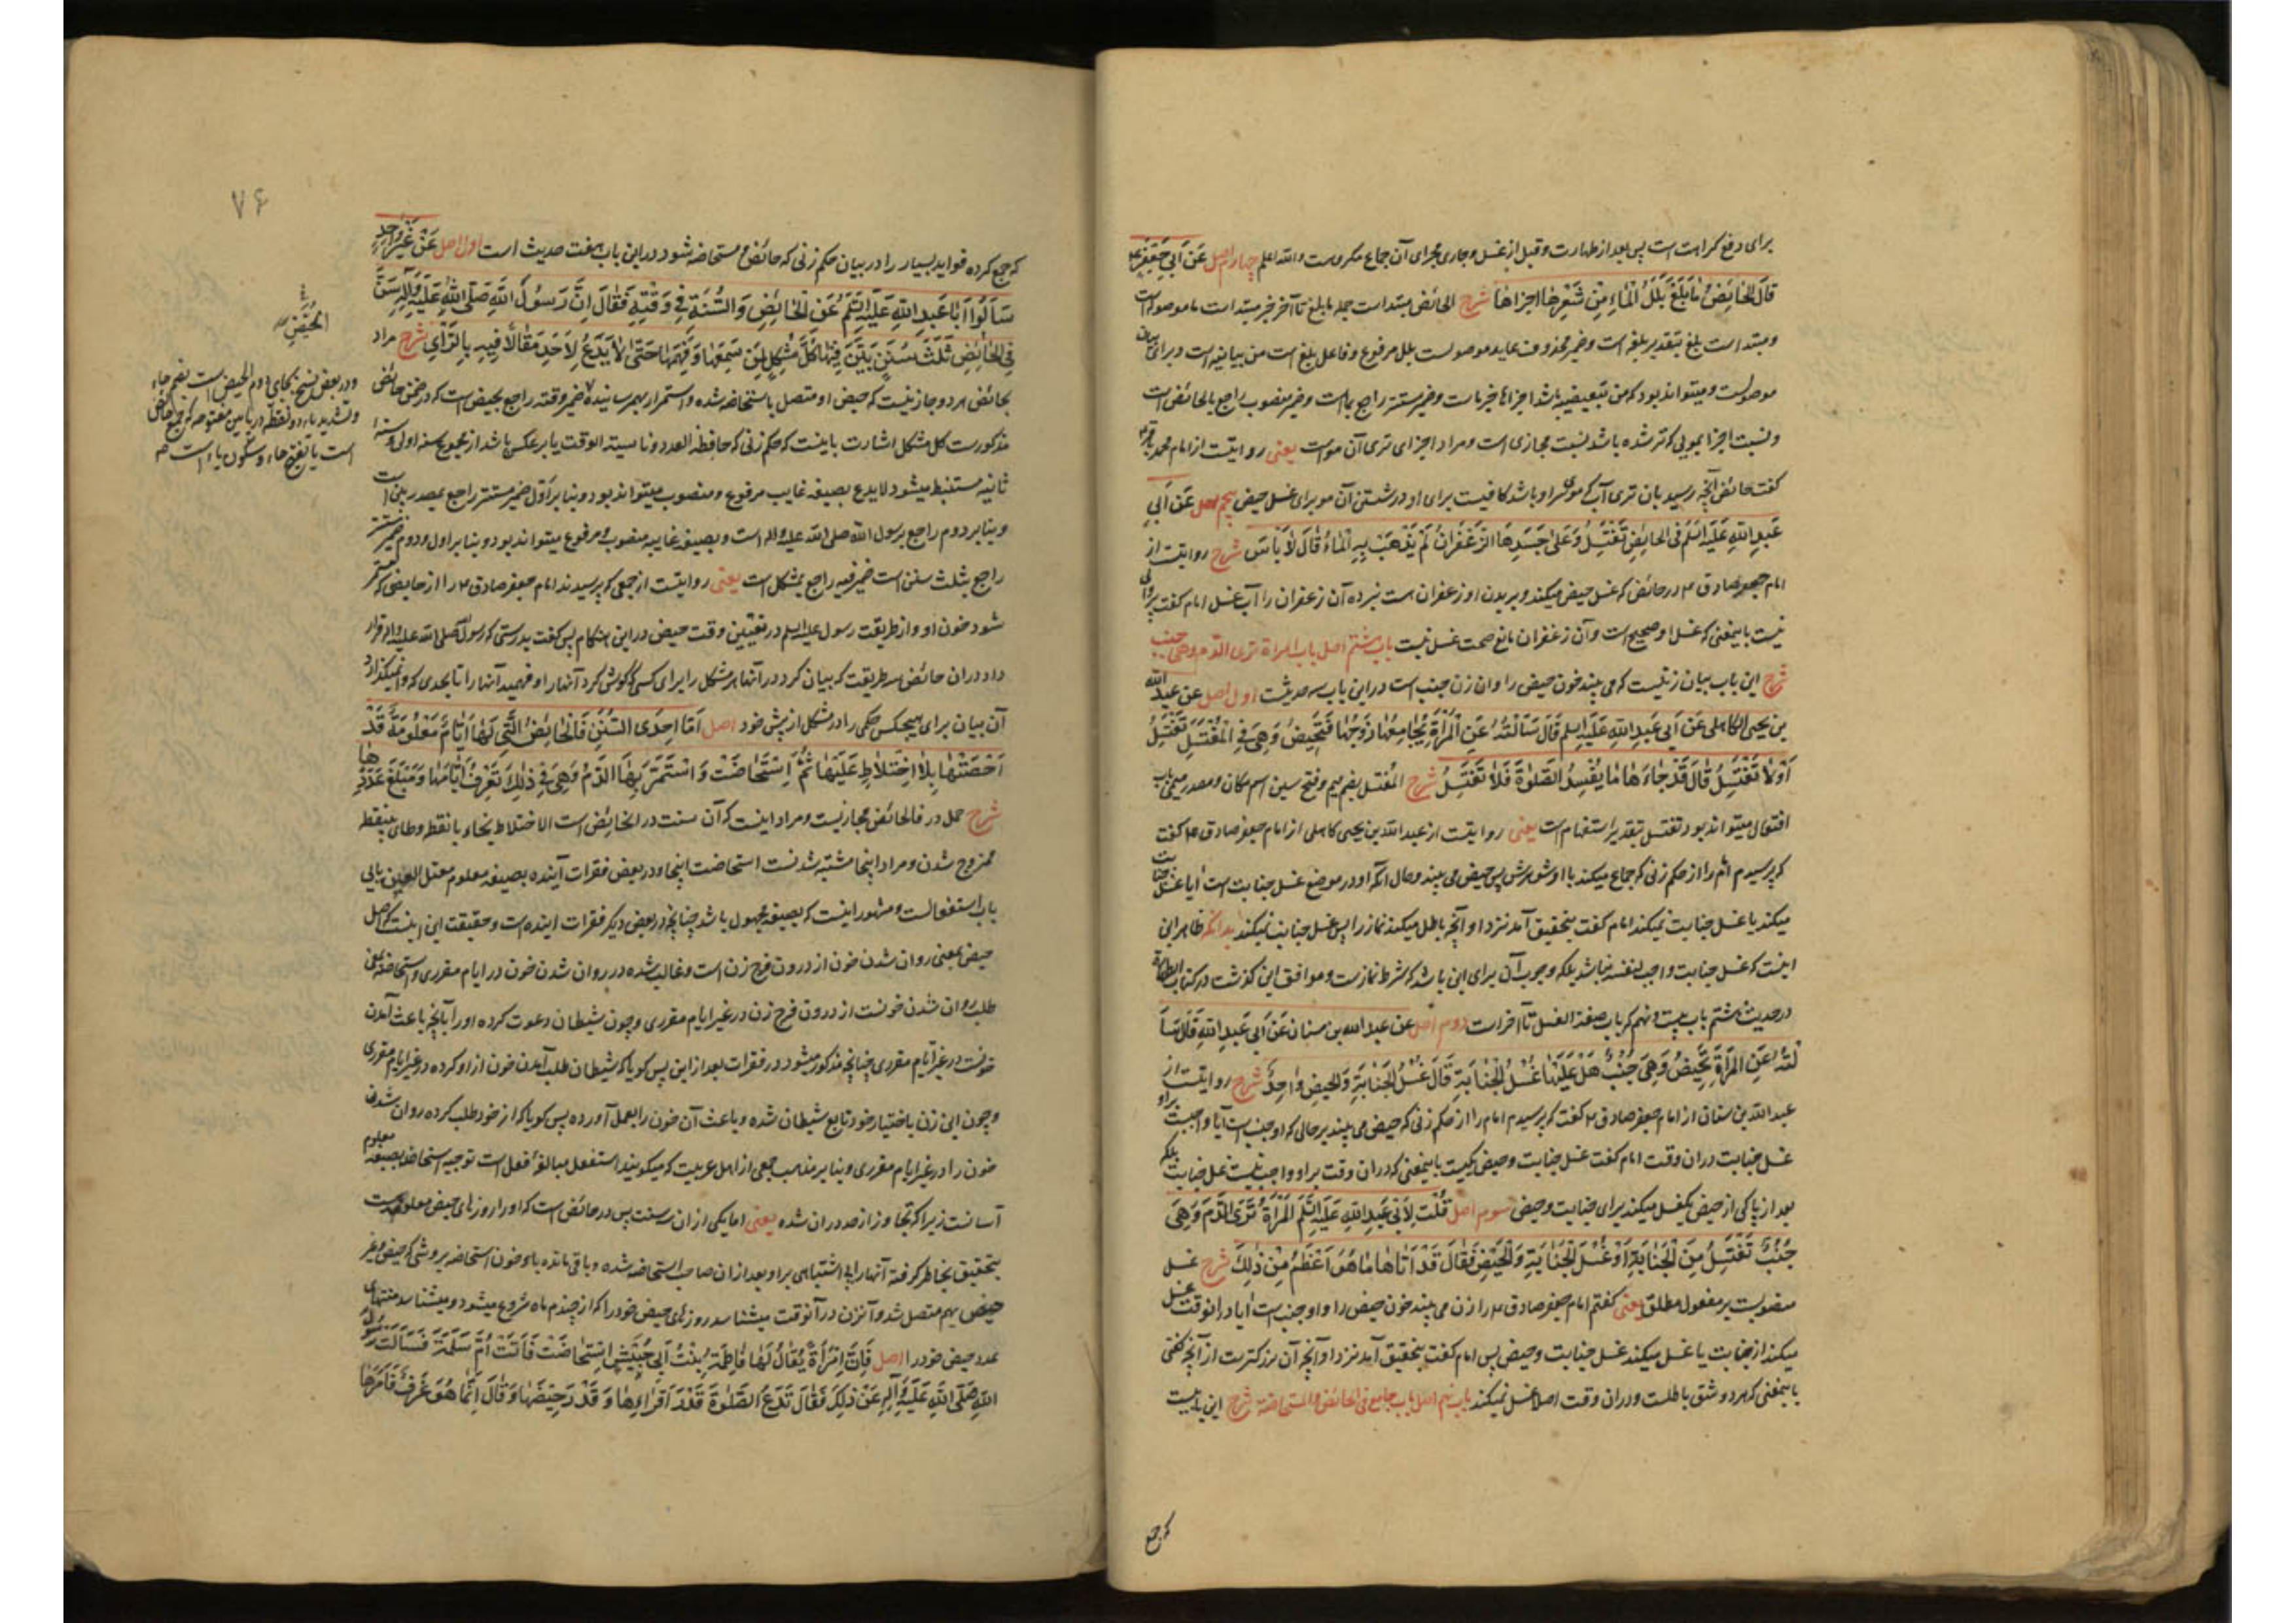 برای دفع کراهت است پس بعد از طهارت و قبل از غسل و جاری مجرای آن جماع مکروست والله اعلم چهارم اصل عَن اَبی جَعْفَرٍ
قالَ الحائِضُ مابَلَغَ بَلَلُ الْماءِ مِنْ شَعْرِها اجزاها شرح الحائض مبتداست جمله مابلغ تا آخر خبر مبتداست ما موصوله است
و مبتداست بلغ بتقدیر بلغه است و ضمیر محذوف عاید موصولست بلل مرفوع و فاعل بلغ است من بیانیه است و برای بیان
موصولست و میتواند بود که من تبعیضیه باشد اجزاها خبر ماست و ضمیر مستتر راجع بماست و ضمیر منصوب راجع بالحائض است
و نسبت اجزا بمویی که تر شده باشد نسبت مجازی است و مراد اجزای تری آن موست یعنی روایتست از امام محمد باقر
گفت حائض آنچه رسید بان تری آب که موی سر او باشد کافیست برای او در شستن آن مو برای غسل حیض پنجم اصل عَن اَبی
عَبدِ اللهِ عَلَیهِ السَّلَم فی الحائِضِ تَغْتَسِلُ وَ عَلی جَسَدِهَا الزَّعْفَرانُ لَمْ یَذْهَبْ بِهِ الْماءُ قالَ لا بَأسَ شرح روایتست از
امام جعفر صادق ع در حائض که غسل حیض میکند و بر بدن او زعفران است نبرده آن زعفران را آب غسل امام گفت پروایی
نیست باینمعنی که غسل او صحیح است و آن زعفران مانع صحت غسل نیست باب هشتم اصل باب المراة تری الدم و هی جنب
شرح این باب بیان زنیست که می بیند خون حیض را و ان زن جنب است در این باب سه حدیثست اول اصل عن عبد الله
بن یحیی الکاهلی عَن اَبی عَبدِ اللهِ عَلَیهِ السلم قالَ سَاَلْتُهُ عَنِ الْمَرْاَةِ یُجامِعُها زَوْجُها فَتَحیضُ وَ هِیَ فِی الْمُغْتَسَلِ تَغْتَسِلُ
اَوْ لا تَغْتَسِلُ قالَ قَدْ جاءَ ها ما یُفْسِدُ الصَّلوةَ فَلا تَغْتَسِلُ شرح المُغتسل بضم میم و فتح سین اسم مکان و مصدر میمی باب
افتعال میتواند بود تغتسل بتقدیر استفهام است یعنی روایتست از عبدالله بن یحیی کاهلی از امام جعفر صادق ع گفت
که پرسیدم امام را از حکم زنی که جماع میکند با او شوهرش پس حیض می بیند و حال آنکه او در موضع غسل جنابت است آیا غسل جنابت
میکند یا غسل جنابت نمیکند امام گفت بتحقیق آمد نزد او آنچه باطل میکند نماز را پس غسل جنابت نمیکند بدانکه ظاهر این
اینست که غسل جنابت واجب لنفسه نباشد بلکه وجوب آن برای این باشد که شرط نمازست و موافق این گذشت در کتاب الطهارة
در حدیث هشتم باب بیست و نهم که باب صفة الغسل تا آخرست دوم اصل عن عبد الله بن سنان عَن اَبی عَبدِ اللهِ قالَ سَاَ
لْتُهُ عَنِ المَرْاَةِ تَحیضُ وَ هِیَ جُنُبٌ هَلْ عَلَیْها غُسْلُ الْجَنابَةِ قالَ غُسْلُ الجَنابَةِ وَ الحیضِ واحِدٌ شرح روایتست از
عبدالله بن سنان از امام جعفر صادق ع گفت که پرسیدم امام را از حکم زنی که حیض می بیند بر حالی که او جنب است آیا واجبست بر او
غسل جنابت در ان وقت امام گفت غسل جنابت و حیض یکیست باینمعنی که در ان وقت بر او واجب نیست غسل جنابت بلکه
بعد از پاکی از حیض یک غسل میکند برای جنابت و حیض سوم اصل قُلْتُ لِاَبی عَبدِ اللهِ عَلَیهِ السَّلَم الْمَرْاَةُ تَرَی الدَّمَ وَ هِیَ
جُنُبٌ تَغْتَسِلُ مِنَ الْجَنابَةِ اَوْ غُسْلَ الْجَنابَةِ وَ الْحَیْضِ فَقالَ قَدْ اَتاها ما هُوَ اَعْظَمُ مِنْ ذلِکَ شرح غسل
منصوبست بر مفعول مطلق یعنی گفتم امام جعفر صادق ع را زن می بیند خون حیض را و او جنب است ایا در انوقت غسل
میکند از جنابت یا غسل میکند غسل جنابت و حیض پس امام گفت بتحقیق آمد نزد او آنچه آن بزرگترست از آنچه گفتی
باینمعنی که هر دو شق باطلست و در ان وقت اصلا غسل نمیکند باب نهم اصل باب جامع فی الحائض والمستحاضة شرح این بابیست
که جمع
۷۶
که جمع کرده فواید بسیار را در بیان حکم زنی که حائض و مستحاضه شود در این باب هفت حدیث است اول اصل عَنْ غَیْرِ واحِدٍ
سَاَلُوا اَبا عَبدِ اللهِ عَلَیهِ السَّلَم عَنِ الْحائِضِ وَ السُّنَّةِ فی وَقْتِهِ فَقالَ اِنَّ رَسُولَ اللهِ صَلَّی اللهُ عَلَیْهِ وَآلِهِ سَنَّ
فِی الحائِضِ ثَلثَ سُنَنٍ بَیَّنَ فیها کُلَّ مُشْکِلٍ لِمَن سَمِعَها وَ فَهِمَها حَتّی لا یَدَعَ لِاَحَدٍ مَقالًا فیهِ بِالرَّأیِ شرح مراد
بحائض هر دو جا زنیست که حیض او متصل باستحاضه شده و استمرار بهم رسانیده ضمیر وقته راجع بحیض است که در ضمن حائض
مذکورست کل مشکل اشارت باینست که حکم زنی که حافظة العدد و ناسیة الوقت یا بر عکس باشد از مجموع سنه اولی و سنه
ثانیه مستنبط میشود لا یدع بصیغه غایب مرفوع و منصوب میتواند بود و بنا بر اول ضمیر مستتر راجع بمصدر بین است
و بنا بر دوم راجع برسول الله صلی الله علیه واله است و بصیغه غایبه منصوب و مرفوع میتواند بود و بنا بر اول و دوم ضمیر مستتر
راجع بثلث سنن است ضمیر فیه راجع بمشکل است یعنی روایتست از جمعی که پرسیدند امام جعفر صادق ع را از حایضی که مستمر
شود خون او و از طریقت رسول علیه السلم در تعیین وقت حیض در این هنگام پس گفت بدرستی که رسول الله صلی الله علیه واله قرار
داد در ان حائض سه طریقت که بیان کرد در آنها هر مشکل را برای کسی که گوش کرد آنها را و فهمید آنها را تا بحدی که وانمیگذارد
آن بیان برای هیچکس حکمی را در مشکل از پیش خود اصل اَمّا اِحدَی السُّنَنِ فَالْحائِضُ الَّتی لَها اَیّامٌ مَعْلُومَةٌ قَدْ
اَحْصَتْها بِلا اخْتِلاطٍ عَلَیْها ثُمَّ اسْتَحاضَتْ وَ اسْتَمَرَّ بِهَا الدَّمُ وَ هِیَ فی ذلِکَ تَعْرِفُ اَیّامَها وَ مَبْلَغَ عَدَدِها
شرح حمل در فالحائض مجازیست و مراد اینست که آن سنت در الحائض است الاختلاط بخاء با نقطه و طای بینقطه
ممزوج شدن و مراد اینجا مشتبه شدنست استحاضت اینجا و در بعض فقرات آینده بصیغه معلوم معتل العین یایی
باب استفعالست و مشهور اینست که بصیغه مجهول باشد چنانچه در بعض دیگر فقرات اینده است و حقیقت این اینست که اصل
حیض بمعنی روان شدن خون از درون فرج زن است و غالب شده در روان شدن خون در ایام مقرری و استحاضه بمعنی
طلب روان شدن خونست از درون فرج زن در غیر ایام مقرری و چون شیطان دعوت کرده او را بآنچه باعث آمدن
خونست در غیر ایام مقرری چنانچه مذکور میشود در فقرات بعد از این پس گویا که شیطان طلب آمدن خون از او کرده در غیر ایام مقرری
و چون این زن باختیار خود تابع شیطان شده و باعث آن خون را بعمل آورده پس گویا که از خود طلب کرده روان شدن
خون را در غیر ایام مقرری و بنا بر مذهب جمعی از اهل عربیت که میگویند استفعل مبالغه افعل است توجیه استحاضه بصیغه معلوم
آسانست زیرا که تجاوز از حد در ان شده یعنی اما یکی از ان سه سنت پس در حائض است که او را روزهای حیض معلومست
بتحقیق بخاطر گرفته آنها را بی اشتباهی بر او بعد از ان صاحب استحاضه شده و باقی مانده با او خون استحاضه بروشی که حیض و غیر
حیض بهم متصل شد و آنزن در آنوقت میشناسد روزهای حیض خود را که از چندم ماه شروع میشود و میشناسد منتهای
عدد حیض خود را اصل فَاِنَّ امْرَاَةً یُقالُ لَها فاطِمَةُ بِنْتُ اَبی حُبَیْشٍ اسْتَحاضَتْ فَاَتَتْ اُمَّ سَلَمَةَ فَسَاَلَتْ رَسُولَ
اللهِ صَلَّی اللهُ عَلَیْهِ وَآلِهِ عَنْ ذلِکَ فَقالَ تَدَعُ الصَّلوةَ قَدْرَ اَقْراءِها وَ قَدْرَ حِیَضِها وَ قالَ اِنَّما هُوَ عَزْفٌ فَاَمَرَها
الحُیَّضِ
و در بعض نسخ بجای دوم الحیض است بضم حاء
و تشدید یاء دو نقطه در پایین مفتوحه که جمع حائض
است یا بفتح حاء و سکون یاء است